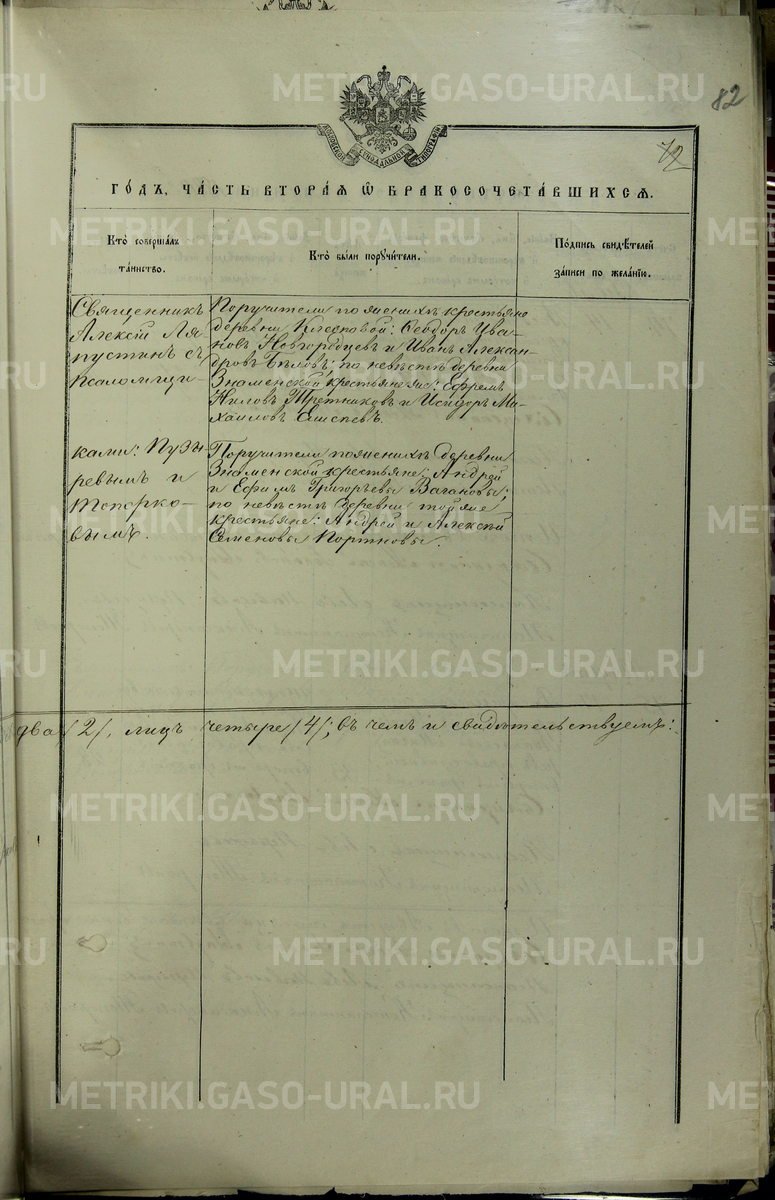 82
72
МОСКОВСКОЙ СѴНОДАЛЬНОЙ ТИПОГРАФІИ
ГО́ДЪ, ЧА́СТЬ ВТОРА́Я Ѡ҆ БРАКОСОЧЕТА́ВШИХСЯ.
Кто̀ соверша́лъ
та́инство.
Кто̀ бы́ли поручи́тели.
По́дпись свидѣ́телей
за́писи по жела́нїю.
Священникъ
Алексій Ля-
пустинъ съ
псаломщи-
ками: Пузы
ревымъ и
Топорко-
вымъ.
Поручители по женихѣ крестьяне
деревни : Ѳеодоръ Ива-
новъ Новгородцевъ и Иванъ Алексан-
дровъ Бѣловъ; по невѣстѣ деревни
Знаменской крестьяне: Ефремъ
Ниловъ Третниковъ и Исидоръ Ми-
хаиловъ
Поручители по женихѣ деревни
Знаменской крестьяне: Андрей
и Ефимъ Григорьевы Вагановы;
по невѣстѣ деревни той же
крестьяне: Андрей и Алексѣй
Семеновы Портновы.
два /2/, лицъ четыре /4/; въ чемъ и свидѣтельствуемъ:
METRIKI.GASO-URAL.RU